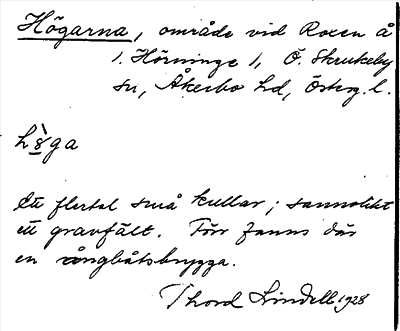 Högarna, område vid Roxen å
1. Hörninge 1, Ö. Skrukeby
sn, Åkerbo hd, Österg. l.
Ett flertal små kullar; sannolikt
ett gravfält. Förr fanns där
en ångbåtsbrygga.
Thord Lindell 1928